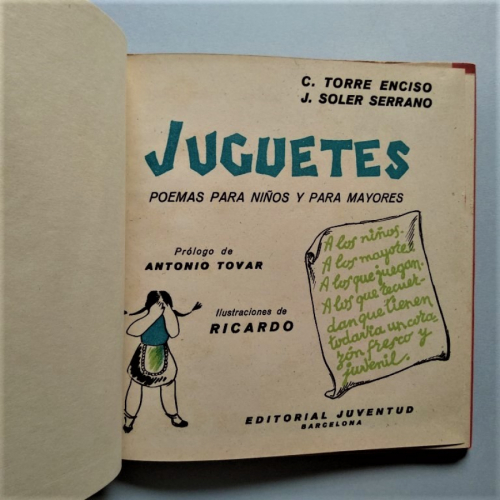 C. TORRE ENCISO
J. SOLER SERRANO
JUGUETES
POEMAS PARA NIÑOS Y PARA MAYORES
Prólogo de
ANTONIO TOVAR
Ilustraciones de
RICARDO
A los niños.
A los mayores
A los que juegan.
A los que recuer-
dan que tienen
todavía un cora-
zón fresco y
juvenil.
EDITORIAL JUVENTUD
BARCELONA